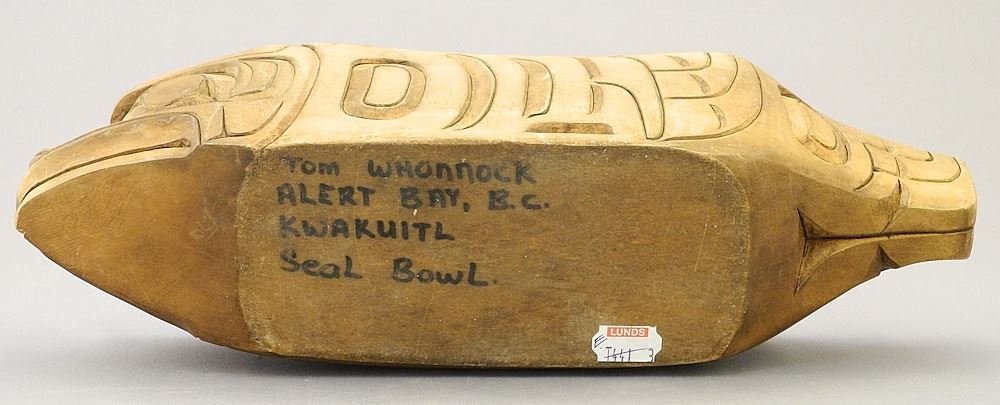 Tom WHONNOCK
ALERT BAY, B.C.
KWAKUITL
SeaL BowL.
LUNDS
E
3